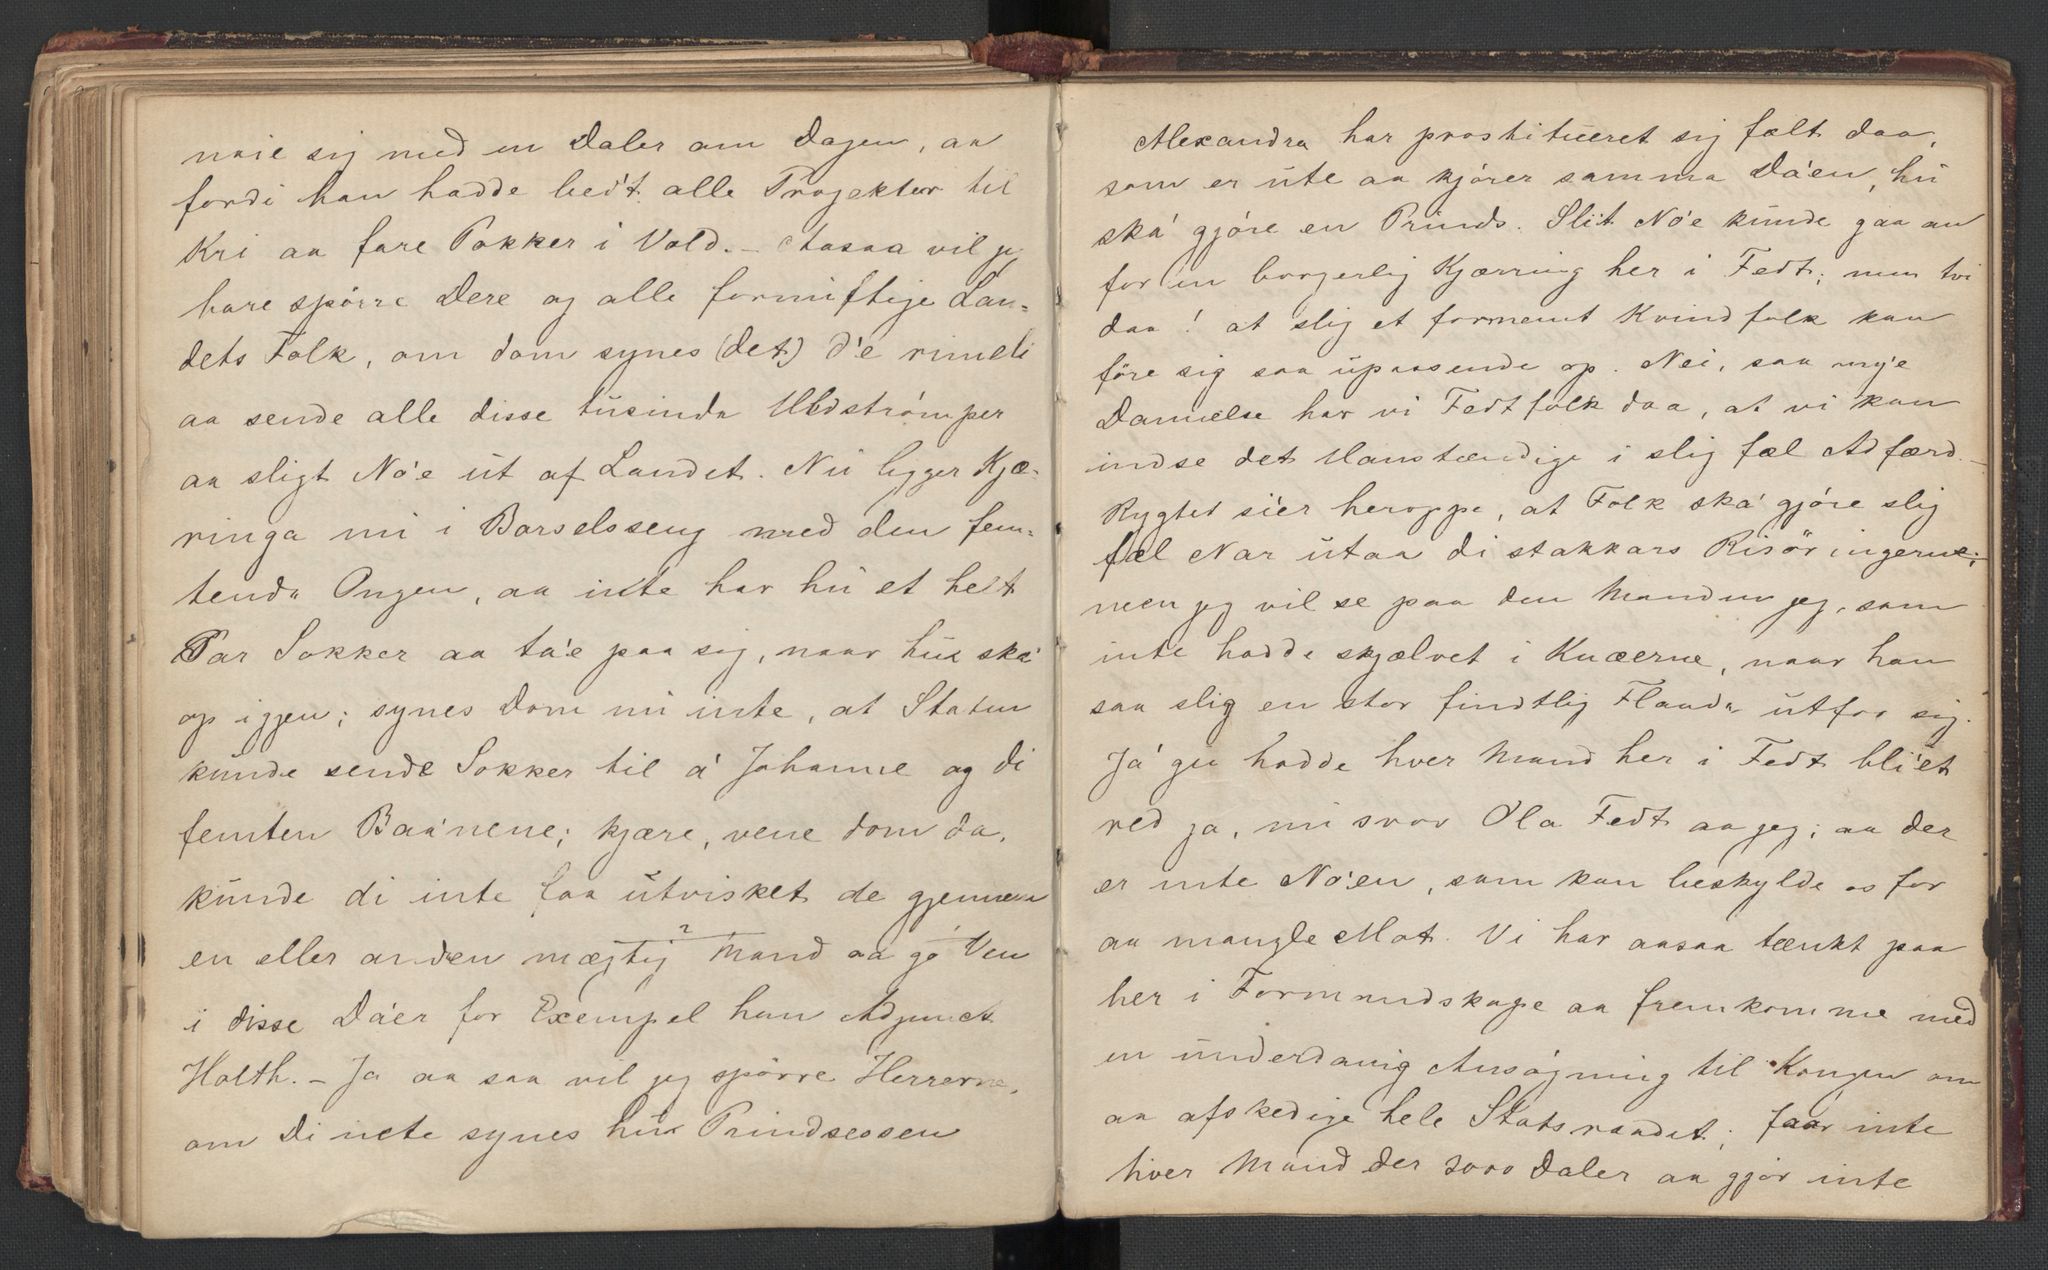 nøie sig med en Daler om Dagen, aa
fordi han hadde bedt alle Projekter til
Kri aa fare Pokker i Vold. – Aasaa vil jeg
bare spörre Dere og alle fornuftige Lan-
dets Folk, om dom synes (det) d'e rimeli
aa sende alle disse tusinda Uldströmper
aa sligt No'e ut af Landet. Nu ligger Kjæ-
ringa mi i Barselsseng med den fem-
tenda Ongen, aa inte har hu et helt
Par Sokker aa ta'e paa sig, naar hu ska'
op igjen; synes Dom nu inte, at Staten
kunde sende Sokker til a' Johanne og di
femten Baa'nene; kjære, vene dom da,
kunde di inte faa utvisket de gjennem
en eller anden mægtig? Mand aa go' Ven
i disse Da'er for Exempel han Adjunct
Holth. – Ja aa saa vil jeg spörre Herrerne,
om Di inte synes hu Prindsessen
Alexandra har prostitueret sig fælt daa,
som er ute aa kjörer samma Da'en, hu
ska' gjöre en Prinds. Slit No'e kunde gaa an
for en borgerlig Kjærring her i Fedt; men tvi
daa! at slig et fornemt Kvindfolk kan
före sig saa upassende op. Nei, saa my'e
Dannelse har vi Fedtfolk daa, at vi kan
indse det Uanstændige i slig fæl Adfærd. –
Rygtet si'er heroppe, at Folk ska' gjöre slig
fæl Nar utaa di stakkars Risöringerne;
men jeg vil se paa den Manden jeg, som
inte hadde skjælvet i Knæerne, naar han
saa slig en stor findtlig Flaade utfor sig.
Ja' gu hadde hver Mand her i Fedt bli'et
red ja, mi svor Ola Fedt aa jeg; aa der
er inte No'en, som kan beskylde os for
aa mangle Mot. Vi har aasaa tænkt paa
her i Formandskape aa fremkomme med
en underdanig Ansögning til Kongen om
aa afskedige hele Statsraadet; faar inte
hver Mand der 3000 Daler aa gjör inte